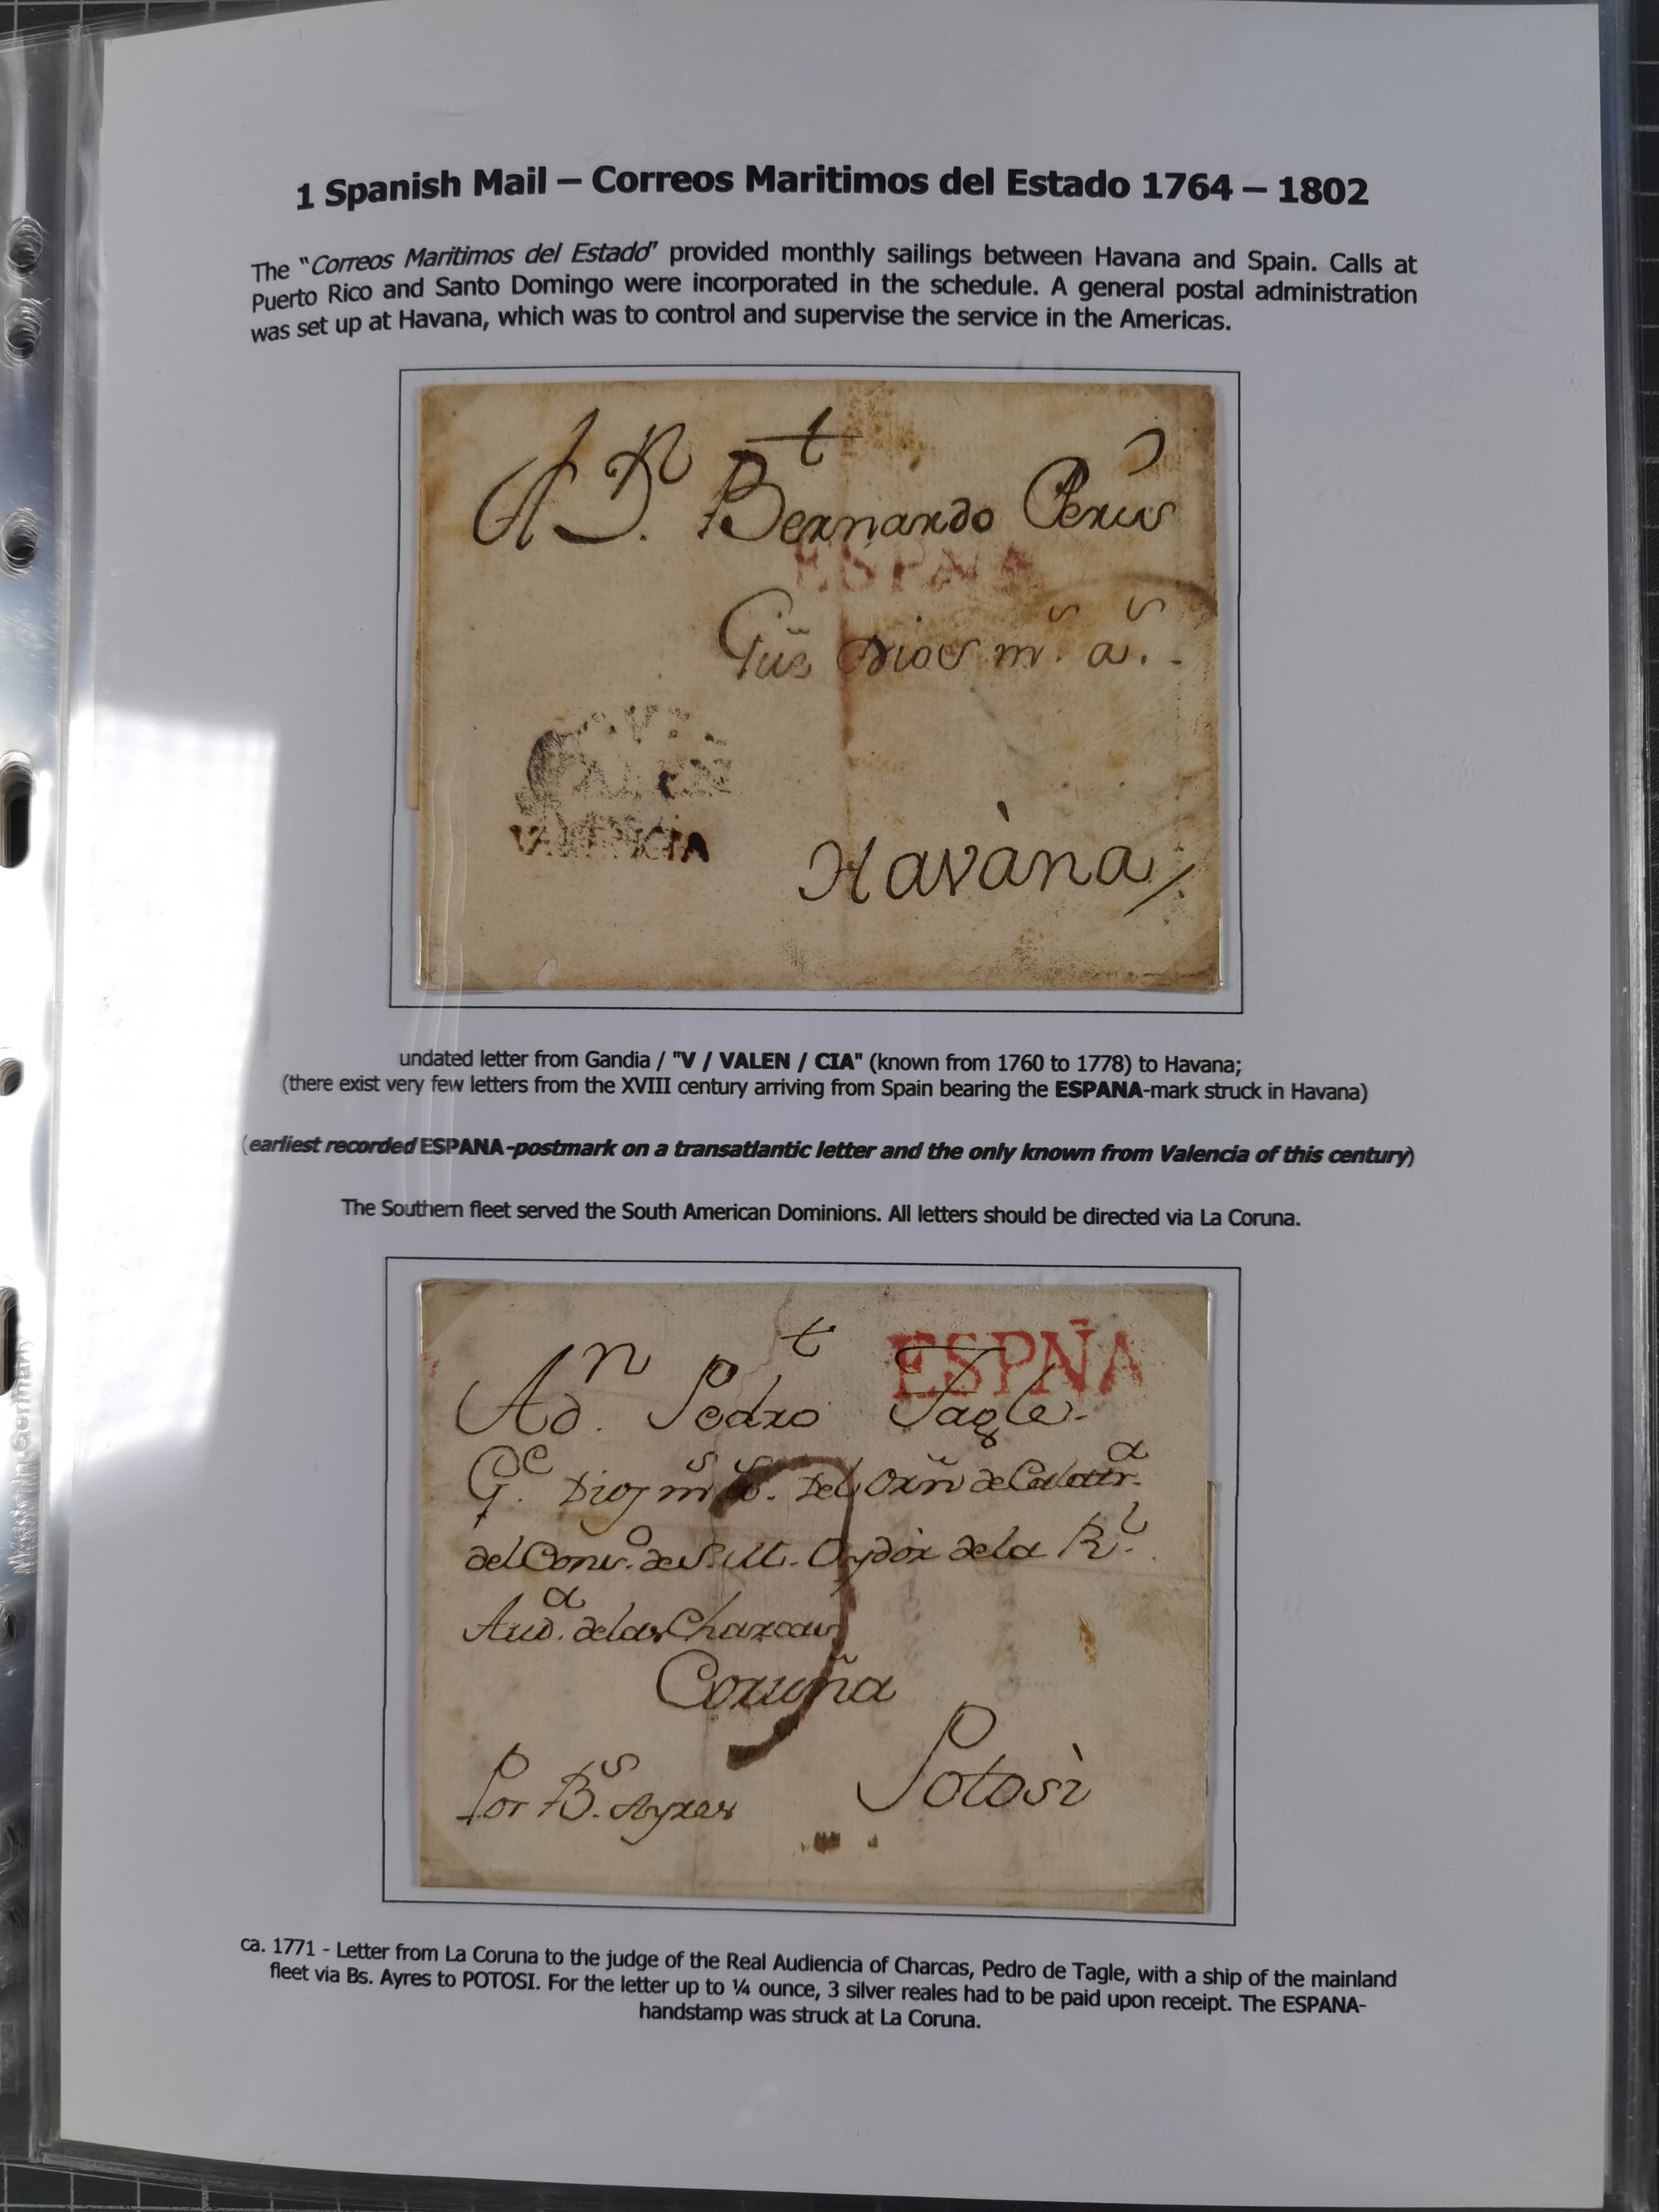 1 Spanish Mail – Correos Maritimos del Estado 1764 – 1802
The "Correos Maritimos del Estado" provided monthly sailings between Havana and Spain. Calls at
Puerto Rico and Santo Domingo were incorporated in the schedule. A general postal administration
was set up at Havana, which was to control and supervise the service in the Americas.
t
A Dn. Bernardo
ESPÑA
Gue Dios ms. as.
VALENCIA
Havàna
undated letter from Gandia / "V / VALEN / CIA" (known from 1760 to 1778) to Havana;
(there exist very few letters from the XVIII century arriving from Spain bearing the ESPANA-mark struck in Havana)
(earliest recorded ESPANA-postmark on a transatlantic letter and the only known from Valencia of this century)
The Southern fleet served the South American Dominions. All letters should be directed via La Coruna.
t
ESPÑA
A dn. Pedro Tagle.
Ge. Dios ms as. Del Orn de Calatra.
del Conso. de S. M. Oydor de la Rl.
Auda. de las Charcas
Coruña
Por Bs. Ayres Potosì
ca. 1771 - Letter from La Coruna to the judge of the Real Audiencia of Charcas, Pedro de Tagle, with a ship of the mainland
fleet via Bs. Ayres to POTOSI. For the letter up to ¼ ounce, 3 silver reales had to be paid upon receipt. The ESPANA-
handstamp was struck at La Coruna.